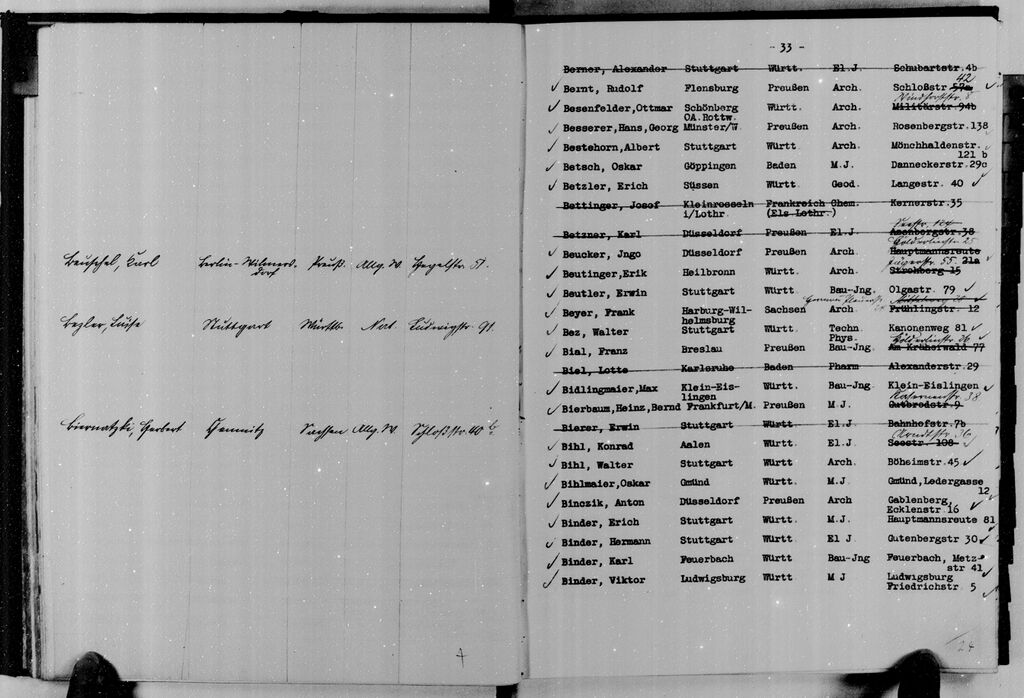 Beuschel, Karl Berlin-Wilmers- Preuß. Allg. W. Hegelstr. 51.
dorf
Bezler, Luise Stuttgart Württb. Nat. Ludwigstr. 91.
Biernatzki, Herbert Chemnitz Sachsen Allg. W. Schloßstr. 40 b.
- 33 -
Berner, Alexander Stuttgart Württ. El.J. Schubartstr. 4b
42
Bernt, Rudolf Flensburg Preußen Arch. Schloßstr. 57a
Besenfelder, Ottmar Schönberg Württ. Arch. Militärstr. 94b
OA.Rottw.
Besserer, Hans, Georg Münster/W. Preußen Arch. Rosenbergstr. 138
Bestehorn, Albert Stuttgart Württ Arch. Mönchhaldenstr.
121 b
Betsch, Oskar Göppingen Baden M.J. Danneckerstr. 29c
Betzler, Erich Süssen Württ. Geod. Langestr. 40
Bettinger, Josef Kleinrosseln Frankreich Chem. Kernerstr. 35
i/Lothr. (Els Lothr.)
Betzner, Karl Düsseldorf Preußen El.J. Aschbergstr. 38
Hölderlinstr. 25
Beucker, Jngo Düsseldorf Preußen Arch. Hauptmannsreute
55. 21a
Beutinger, Erik Heilbronn Württ. Arch. Strohberg 15
Beutler, Erwin Stuttgart Württ Bau-Jng. Olgastr. 79
Beyer, Frank Harburg-Wil- Sachsen Arch Frühlingstr. 12
helmsburg
Bez, Walter Stuttgart Württ. Techn. Kanonenweg 81
Phys. Hölderlinstr. 26
Bial, Franz Breslau Preußen Bau-Jng. Am Kräherwald 77
Biel, Lotte Karlsruhe Baden Pharm Alexanderstr. 29
Bidlingmaier, Max Klein-Eis- Württ. Bau-Jng Klein-Eislingen
lingen Kasernenstr. 38
Bierbaum, Heinz, Bernd Frankfurt/M. Preußen M.J. Gutbrodstr. 9
Bierer, Erwin Stuttgart Württ El.J. Bahnhofstr. 7b
Arndtstr. 36
Bihl, Konrad Aalen Württ El.J. Seestr. 108
Bihl, Walter Stuttgart Württ Arch. Böheimstr. 45
Bihlmaier, Oskar Gmünd Württ. M.J. Gmünd, Ledergasse
12
Binczik, Anton Düsseldorf Preußen Arch Gablenberg,
Ecklenstr. 16
Binder, Erich Stuttgart Württ. M.J. Hauptmannsreute 81
Binder, Hermann Stuttgart Württ El J. Gutenbergstr 30
Binder, Karl Feuerbach Württ Bau-Jng Feuerbach, Metz-
str 41
Binder, Viktor Ludwigsburg Württ M J Ludwigsburg
Friedrichstr. 5